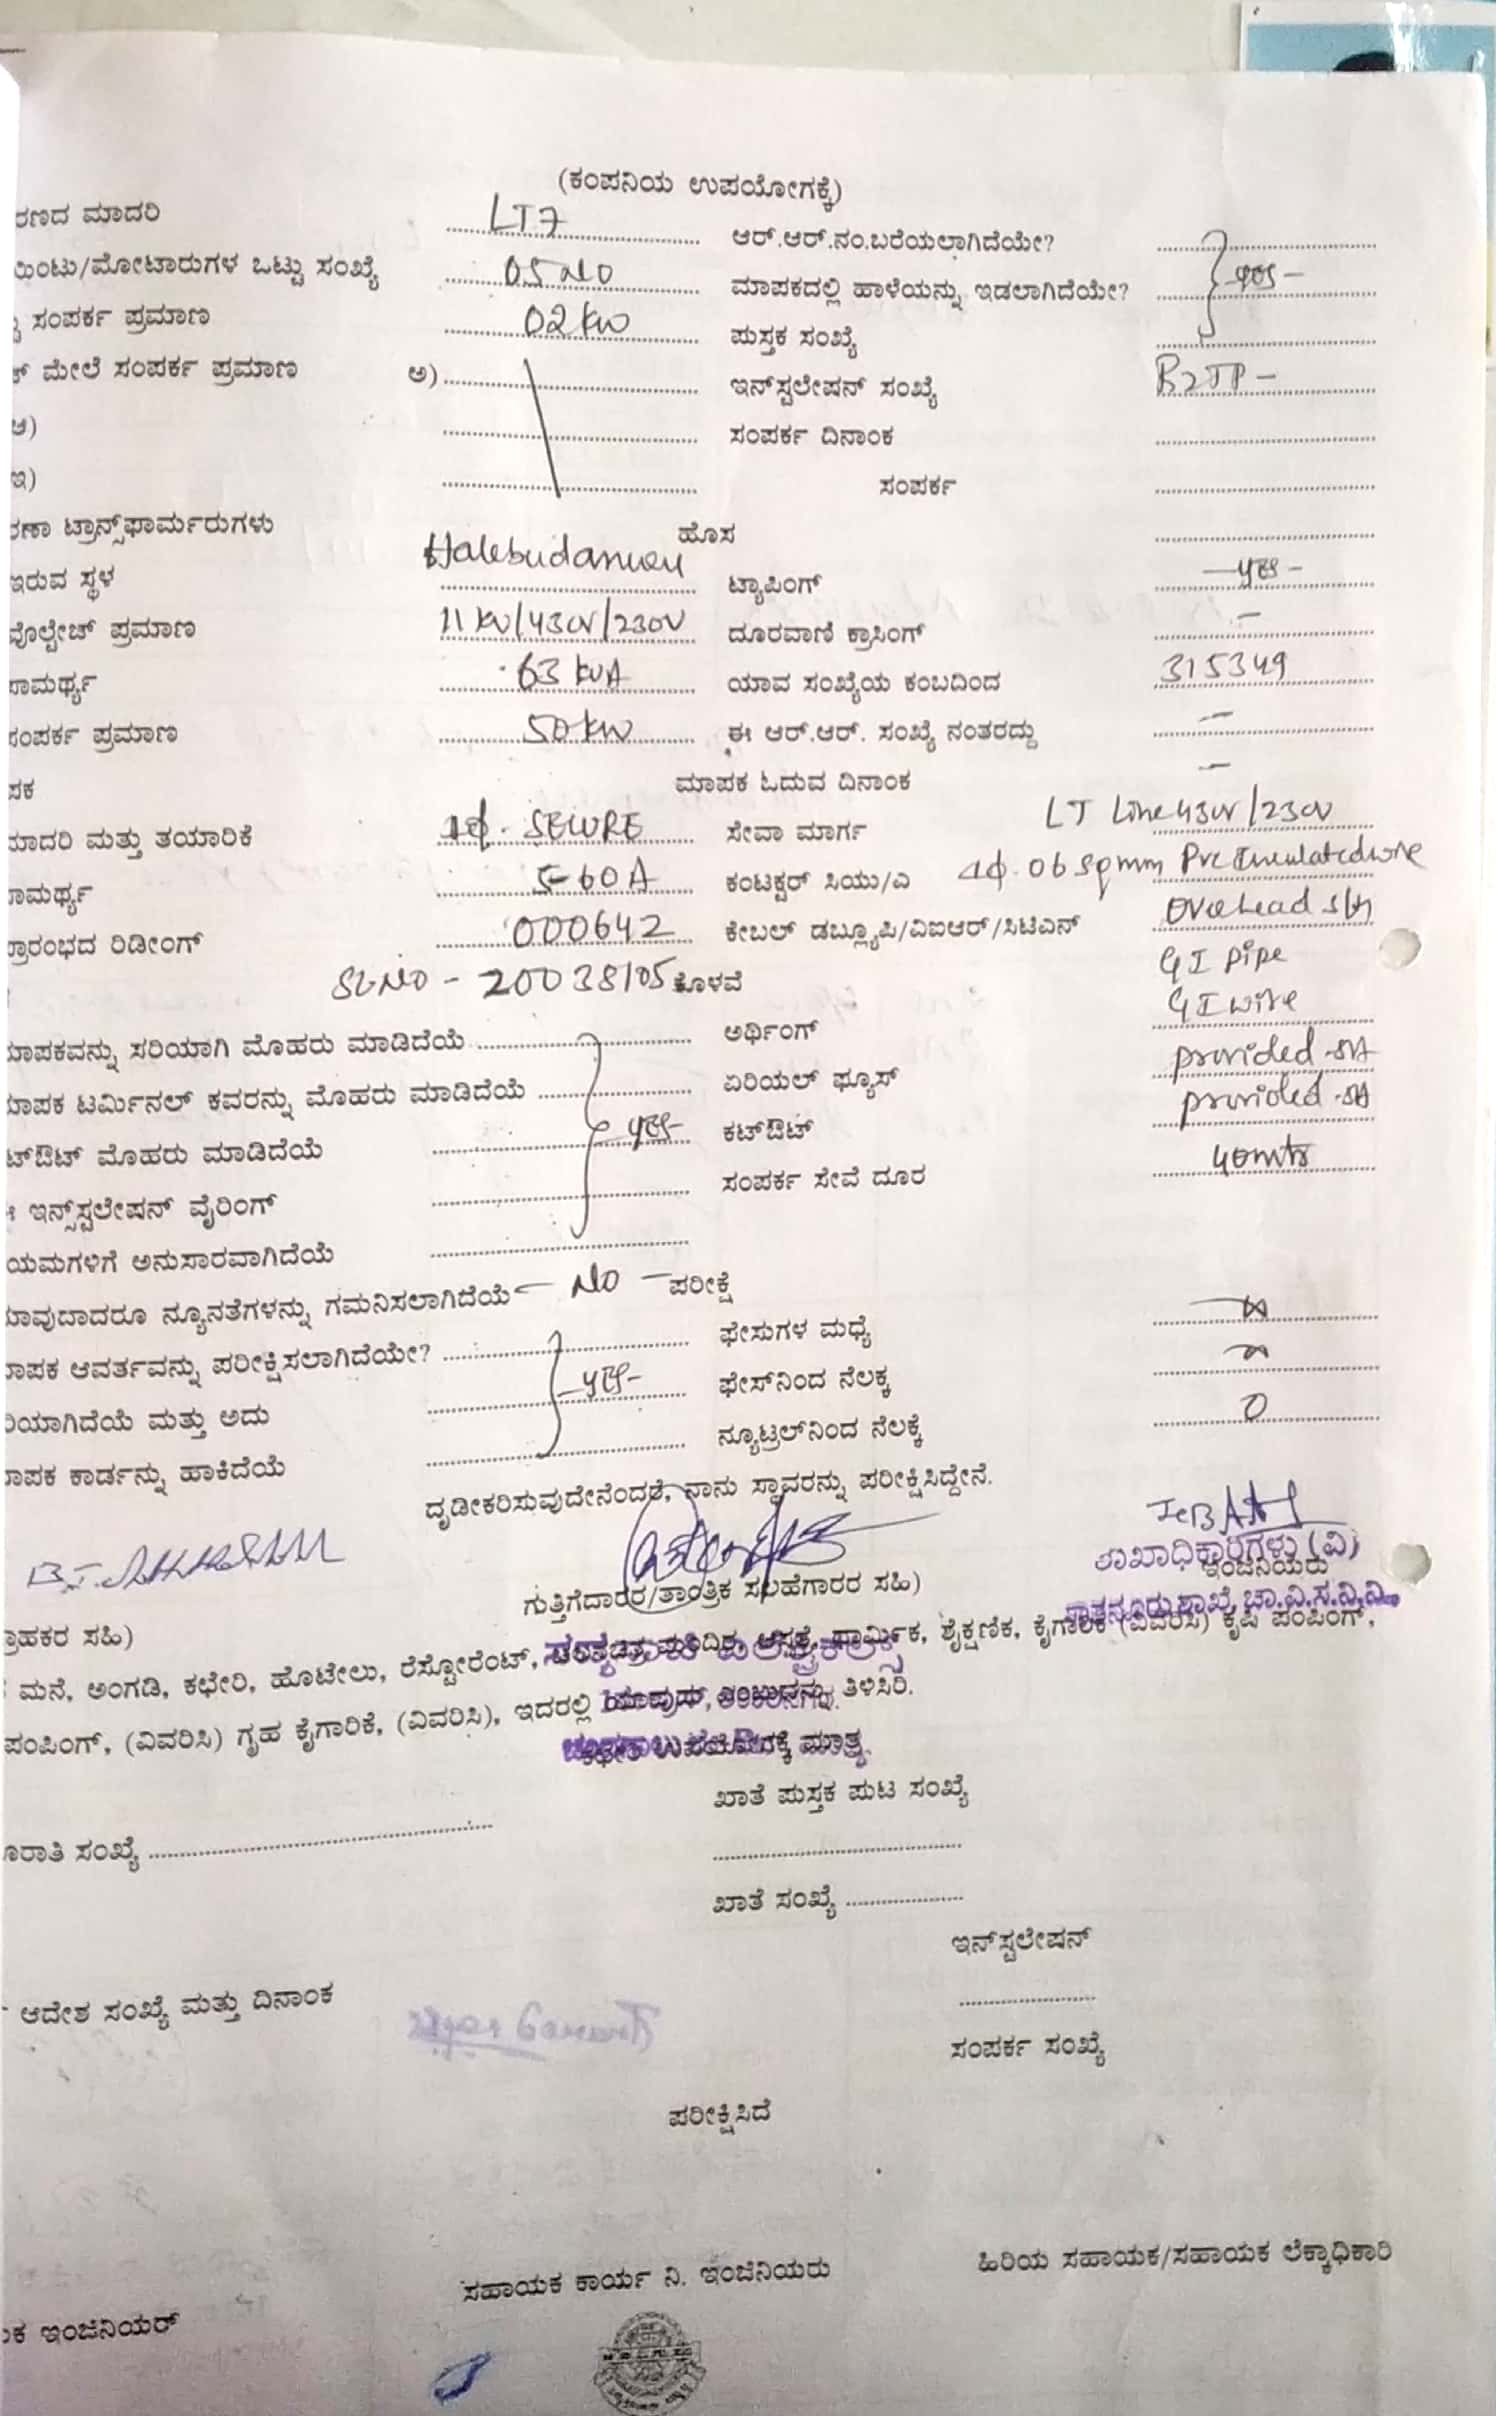 (ಕಂಪನಿಯ ಉಪಯೋಗಕ್ಕೆ)
ರಣದ ಮಾದರಿ LT7 ಆರ್.ಆರ್.ನಂ.ಬರೆಯಲಾಗಿದೆಯೇ?
ಯಿಂಟು/ಮೋಟಾರುಗಳ ಒಟ್ಟು ಸಂಖ್ಯೆ 05 NO ಮಾಪಕದಲ್ಲಿ ಹಾಳೆಯನ್ನು ಇಡಲಾಗಿದೆಯೇ? yes -
ಸಂಪರ್ಕ ಪ್ರಮಾಣ 02 kw ಪುಸ್ತಕ ಸಂಖ್ಯೆ
ಮೇಲೆ ಸಂಪರ್ಕ ಪ್ರಮಾಣ ಅ) ಇನ್‌ಸ್ಟಲೇಷನ್ ಸಂಖ್ಯೆ
ಆ) ಸಂಪರ್ಕ ದಿನಾಂಕ
ಇ) ಸಂಪರ್ಕ
ರಣಾ ಟ್ರಾನ್ಸ್‌ಫಾರ್ಮರುಗಳು ಹೊಸ
ಇರುವ ಸ್ಥಳ ಟ್ಯಾಪಿಂಗ್ - yes -
ವೊಲ್ಟೇಜ್ ಪ್ರಮಾಣ 11 kv/430v/230v ದೂರವಾಣಿ ಕ್ರಾಸಿಂಗ್ -
ಸಾಮರ್ಥ್ಯ 63 kVA ಯಾವ ಸಂಖ್ಯೆಯ ಕಂಬದಿಂದ 315349
ಸಂಪರ್ಕ ಪ್ರಮಾಣ 50 kw ಈ ಆರ್.ಆರ್. ಸಂಖ್ಯೆ ನಂತರದ್ದು -
ಪಕ ಮಾಪಕ ಓದುವ ದಿನಾಂಕ -
ಮಾದರಿ ಮತ್ತು ತಯಾರಿಕೆ 1ф. SECURE ಸೇವಾ ಮಾರ್ಗ LT Line 430v/230v
ಸಾಮರ್ಥ್ಯ 5-60 A ಕಂಟಕ್ಟರ್ ಸಿಯು/ಎ 1ф. 06 sqmm Pvc Insulated wire
ಪ್ರಾರಂಭದ ರಿಡೀಂಗ್ 000642 ಕೇಬಲ್ ಡಬ್ಲ್ಯೂಪಿ/ವಿಐಆರ್/ಸಿಟಿಎನ್ overhead
SL NO - 20038105 ಕೊಳವೆ GI pipe
ಮಾಪಕವನ್ನು ಸರಿಯಾಗಿ ಮೊಹರು ಮಾಡಿದೆಯೆ ಅರ್ಥಿಂಗ್ GI wire
ಮಾಪಕ ಟರ್ಮಿನಲ್ ಕವರನ್ನು ಮೊಹರು ಮಾಡಿದೆಯೆ ಏರಿಯಲ್ ಫ್ಯೂಸ್ provided
ಟ್‌ಔಟ್ ಮೊಹರು ಮಾಡಿದೆಯೆ - yes- ಕಟ್‌ಔಟ್ provided
ಇನ್ಸ್‌ಸ್ಟಲೇಷನ್ ವೈರಿಂಗ್ ಸಂಪರ್ಕ ಸೇವೆ ದೂರ 40mtr
ಯಮಗಳಿಗೆ ಅನುಸಾರವಾಗಿದೆಯೆ
ಯಾವುದಾದರೂ ನ್ಯೂನತೆಗಳನ್ನು ಗಮನಿಸಲಾಗಿದೆಯೆ - NO - ಪರೀಕ್ಷೆ
ಮಾಪಕ ಆವರ್ತವನ್ನು ಪರೀಕ್ಷಿಸಲಾಗಿದೆಯೇ? ಫೇಸುಗಳ ಮಧ್ಯೆ
ರಿಯಾಗಿದೆಯೆ ಮತ್ತು ಅದು - yes - ಫೇಸ್‌ನಿಂದ ನೆಲಕ್ಕ
ಮಾಪಕ ಕಾರ್ಡನ್ನು ಹಾಕಿದೆಯೆ ನ್ಯೂಟ್ರಲ್‌ನಿಂದ ನೆಲಕ್ಕೆ 0
ದೃಡೀಕರಿಸುವುದೇನೆಂದರೆ, ನಾನು ಸ್ಥಾವರನ್ನು ಪರೀಕ್ಷಿಸಿದ್ದೇನೆ.
ಶಾಖಾಧಿಕಾರಿಗಳು (ವಿ)
ಇಂಜಿನಿಯರು
ಗುತ್ತಿಗೆದಾರರ/ತಾಂತ್ರಿಕ ಸಲಹೆಗಾರರ ಸಹಿ)
ಶಾಖೆ, ಚಾ.ವಿ.ಸ.ನಿ.ನಿ.
ಗ್ರಾಹಕರ ಸಹಿ)
ಮನೆ, ಅಂಗಡಿ, ಕಛೇರಿ, ಹೊಟೇಲು, ರೆಸ್ಟೋರೆಂಟ್, ಆಸ್ಪತ್ರೆ, ಧಾರ್ಮಿಕ, ಶೈಕ್ಷಣಿಕ, ಕೈಗಾರಿಕೆ (ವಿವರಿಸಿ) ಕೃಷಿ ಪಂಪಿಂಗ್,
ಪಂಪಿಂಗ್, (ವಿವರಿಸಿ) ಗೃಹ ಕೈಗಾರಿಕೆ, (ವಿವರಿಸಿ), ಇದರಲ್ಲಿ ಯಾವುದು ಎಂಬುದನ್ನು ತಿಳಿಸಿರಿ.
ಕಛೇರಿ ಉಪಯೋಗಕ್ಕೆ ಮಾತ್ರ
ಖಾತೆ ಪುಸ್ತಕ ಪುಟ ಸಂಖ್ಯೆ
ರಾತಿ ಸಂಖ್ಯೆ
ಖಾತೆ ಸಂಖ್ಯೆ
ಇನ್‌ಸ್ಟಲೇಷನ್
ಆದೇಶ ಸಂಖ್ಯೆ ಮತ್ತು ದಿನಾಂಕ
ಸಂಪರ್ಕ ಸಂಖ್ಯೆ
ಪರೀಕ್ಷಿಸಿದೆ
ಕ ಇಂಜಿನಿಯರ್ ಸಹಾಯಕ ಕಾರ್ಯ ನಿ. ಇಂಜಿನಿಯರು ಹಿರಿಯ ಸಹಾಯಕ/ಸಹಾಯಕ ಲೆಕ್ಕಾಧಿಕಾರಿ